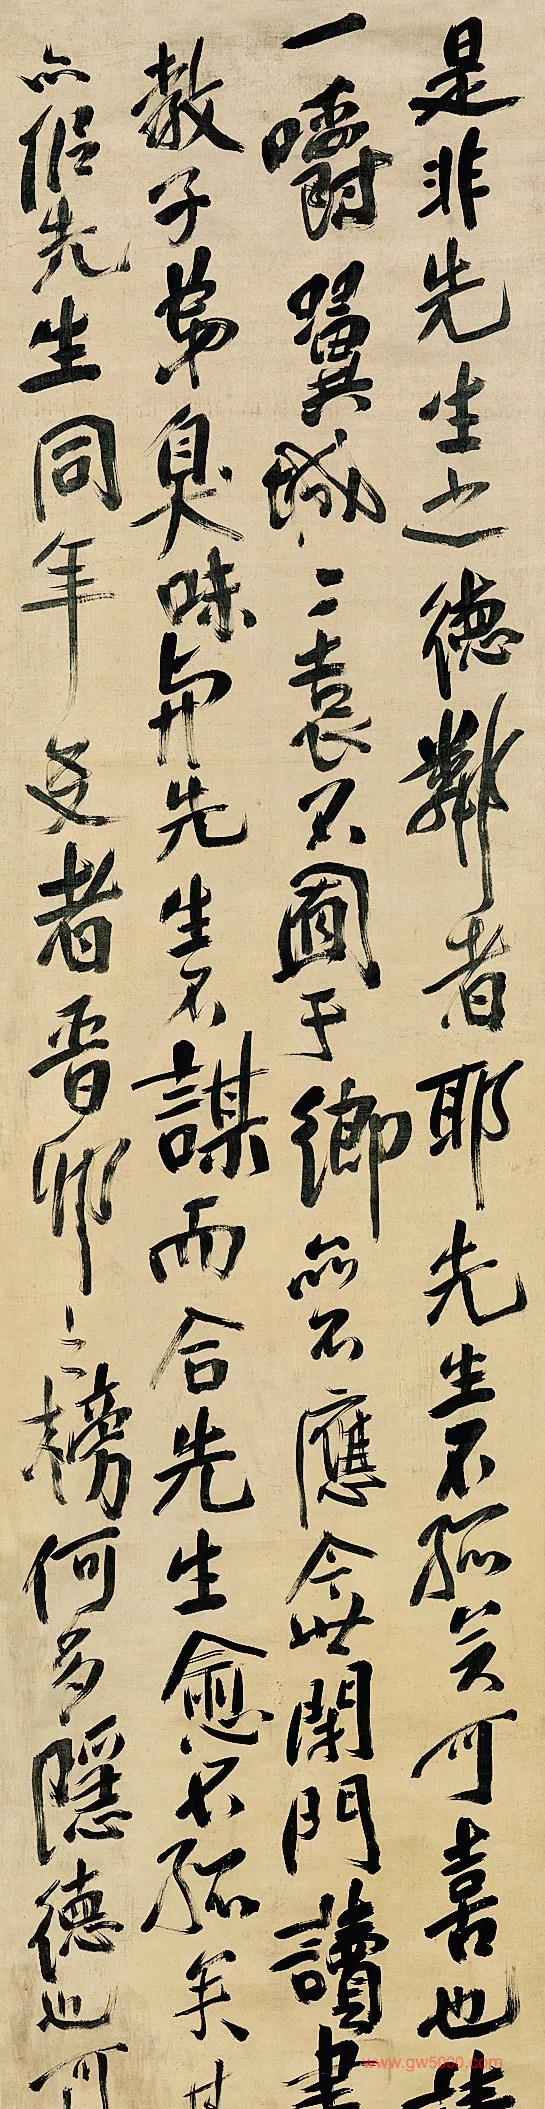 是非先生之德鄰者耶先生不孤矣可喜也
一嚼翼城二袁不囿于鄉亦不應今世閑門讀書
教子弟臭味與先生不謀而合先生愈不孤矣其
亦侶先生同年友者晉卿之榜何多隱德也可
www.gw5000.com